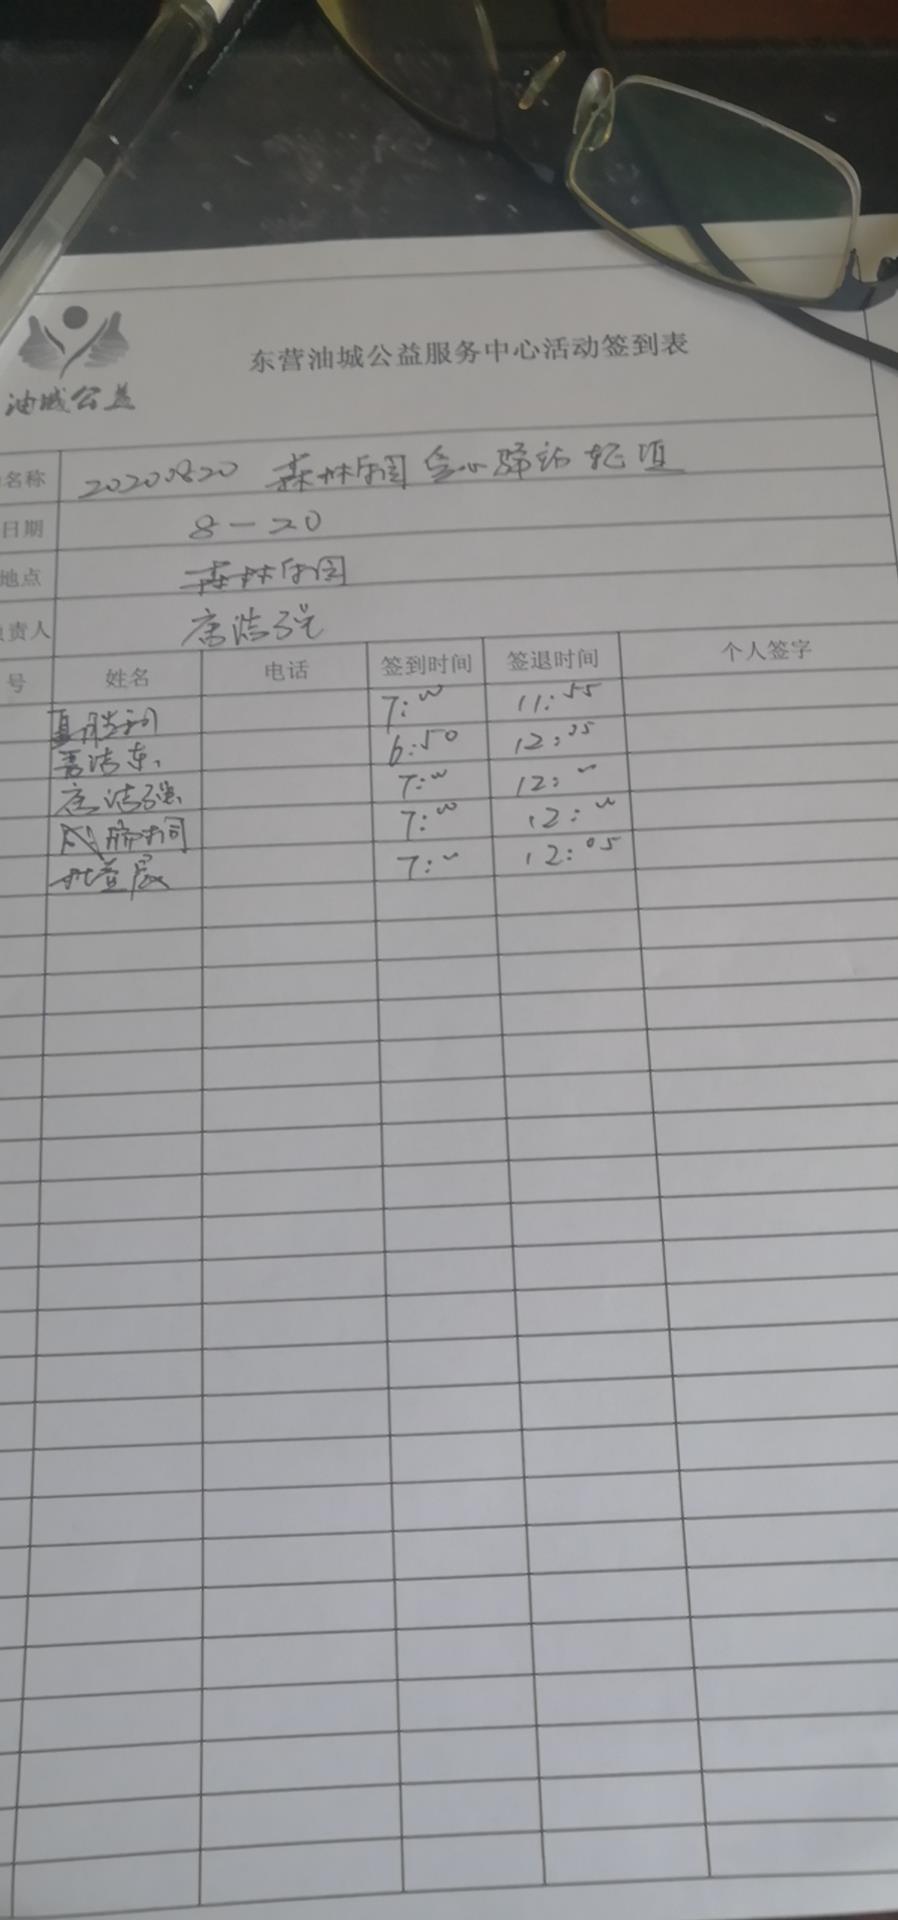 东营油城公益服务中心活动签到表
油城公益
名称 20200820 森林公园 驿站 轮值
日期 8-20
地点 森林公园
责人 唐洪强
号 姓名 电话 签到时间 签退时间 个人签字
夏胜利 7:00 11:55
东 6:50 12:05
唐洪强 7:00 12:00
7:00 12:00
7:00 12:05